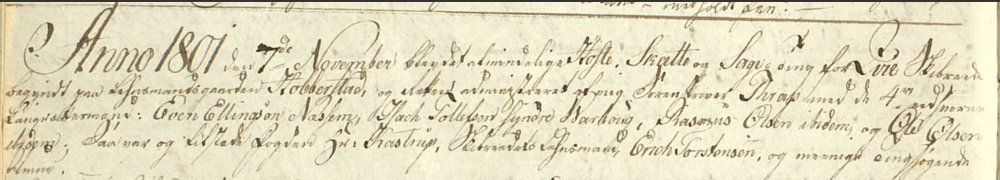 meholdt den. –
Anno 1801 den 7de November blev det almindelige Høste, Skatte og Sage Ting for Tire Skibrede
begyndt paa Lehnsmandsgaarden Kobberstad, og Retten administreret af mig Sorenskriver Thrap med de 4re edsvorne
Laugrettesmænd: Even Ellingsøn Nassem, Isach Tollefsen Syndre Marhoug, Rasmus Olsen ibidem, og Ole Olsen
ibidem; Saa var og tilstæde Fogden Hr: Kastrup, Skibredets Lehnsmand, Erich Torstensen, og meenige Tingsøgende
Almue.